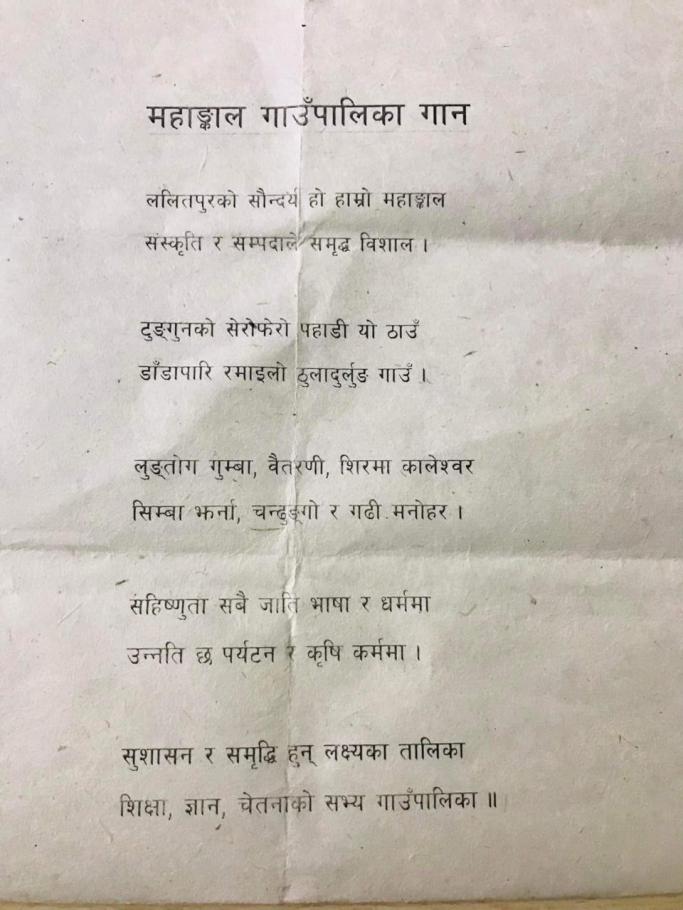 महाङ्काल गाउँपालिका गान
ललितपुरको सौन्दर्य हो हाम्रो महाङ्काल
संस्कृति र सम्पदाले समृद्ध विशाल ।
टुङ्गुनको सेरोफेरो पहाडी यो ठाउँ
डाँडापारि रमाइलो ठुलादुर्लुङ गाउँ ।
लुङ्तोग गुम्बा, वैतरणी, शिरमा कालेश्वर
सिम्बा झर्ना, चन्द्रुङ्गो र गढी मनोहर ।
संहिष्णुता सबै जाति भाषा र धर्ममा
उन्नति छ पर्यटन र कृषि कर्ममा ।
सुशासन र समृद्धि हुन् लक्ष्यका तालिका
शिक्षा, ज्ञान, चेतनाको सभ्य गाउँपालिका ॥